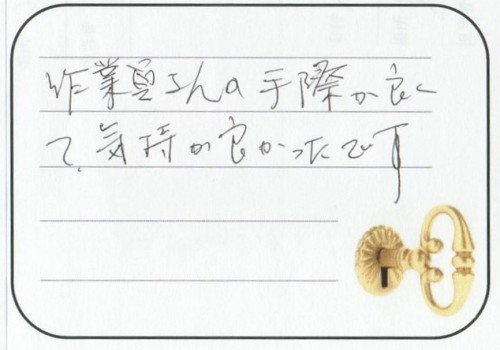 作業員さんの手際が良く
て、気持が良かったです